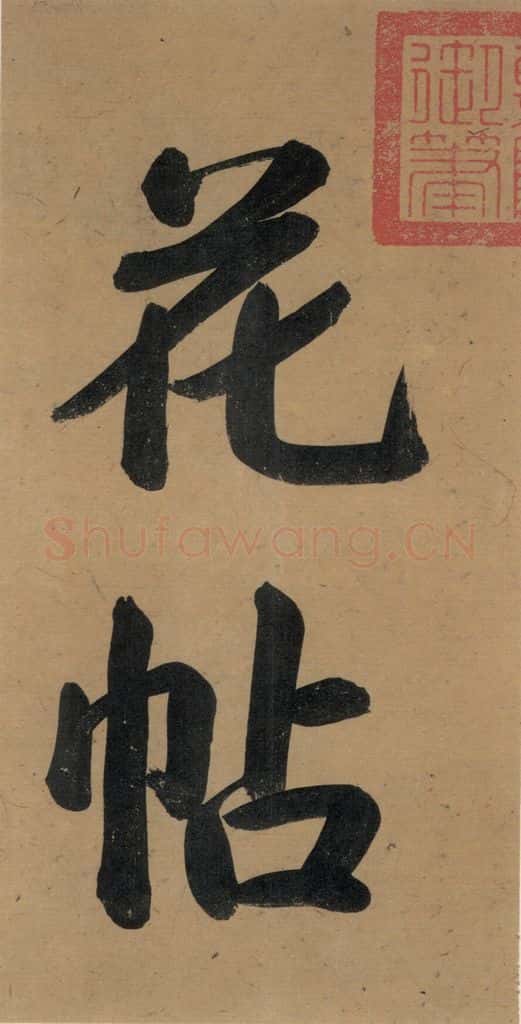 御筆
花
帖
Shufawang.CN